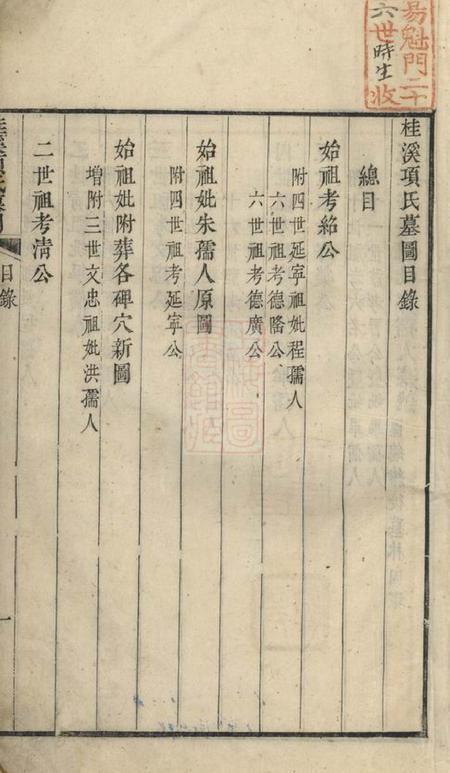 桂溪項氏墓圖目錄
總目
始祖考紹公
附四世延寧祖妣程孺人
六世祖考德隆公
六世祖考德廣公
始祖妣朱孺人原圖
附四世祖考延寧公
始祖妣附葬各碑穴新圖
增附三世文忠祖妣洪孺人
二世祖考清公
目錄
一
易魁門二十
六世時生收